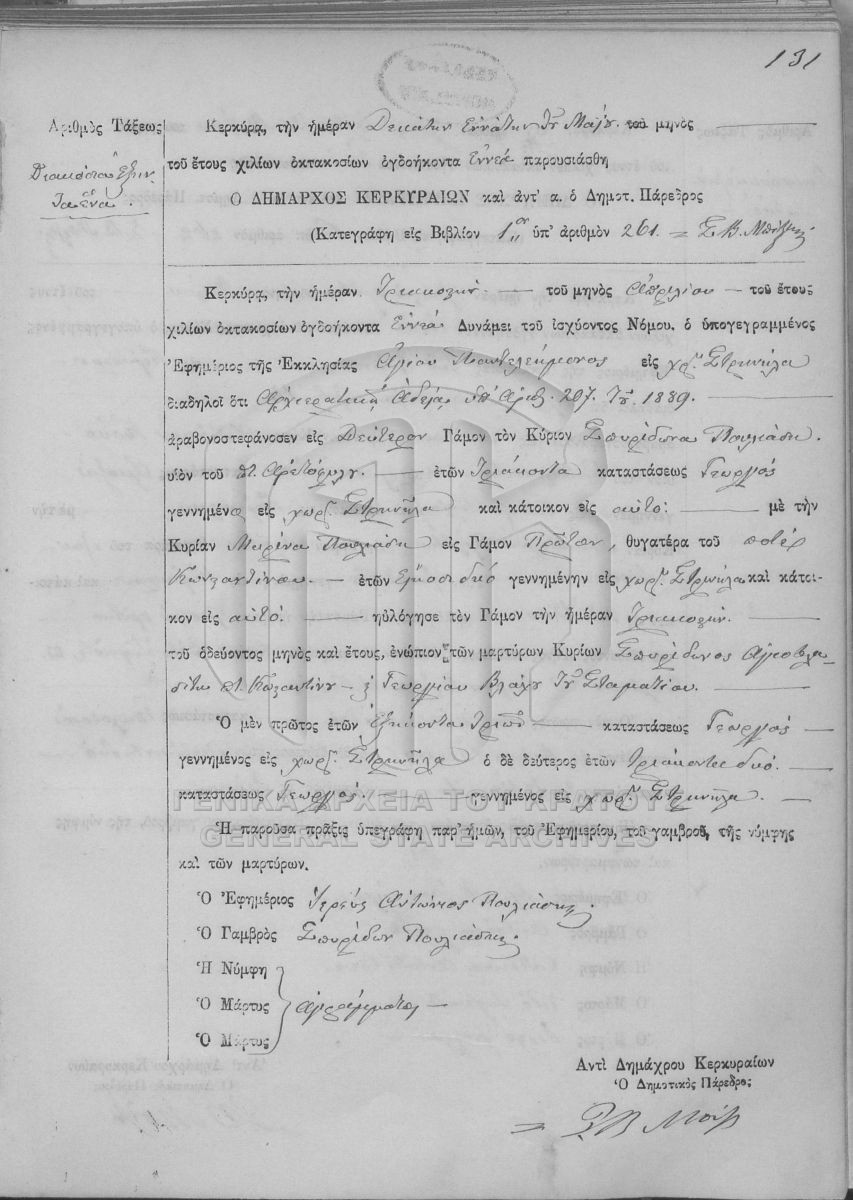 131
Ἀριθμὸς Τάξεως
Διακόσια Ἑξῆν
τα ἕνα
Κερκύρᾳ, τὴν ἡμέραν Δεκάτην Ἐννάτην τοῦ Μαΐου τοῦ μηνὸς
τοῦ ἔτους χιλίων ὀκτακοσίων ὀγδοήκοντα Ἐννέα παρουσιάσθη
Ο ΔΗΜΑΡΧΟΣ ΚΕΡΚΥΡΑΙΩΝ καὶ ἀντ' α. ὁ Δημοτ. Πάρεδρος
(Κατεγράφη εἰς Βιβλίον 1ον ὑπ' ἀριθμὸν 261. = Σ. Β.
Κερκύρᾳ, τὴν ἡμέραν Τριακοστήν. — τοῦ μηνὸς Ἀπριλίου — τοῦ ἔτους
χιλίων ὀκτακοσίων ὀγδοήκοντα Ἐννέα Δυνάμει τοῦ ἰσχύοντος Νόμου, ὁ ὑπογεγραμμένος
Ἐφημέριος τῆς Ἐκκλησίας Ἁγίου Παντελεήμονος εἰς χωρ. Στρινήλα
διαδηλοῖ ὅτι Ἀρχιερατικῇ Ἀδείᾳ ὑπ' Ἀριθ. 207. τοῦ 1889. —
ἀραβονοστεφάνοσεν εἰς Δεύτερον Γάμον τὸν Κύριον Σπυρίδωνα Πουλιάση.
υἱὸν τοῦ — ἐτῶν Τριάκοντα καταστάσεως Γεωργὸς
γεννημένο εἰς χωρ. Στρινῆλα καὶ κάτοικον εἰς αὐτό: — μὲ τὴν
Κυρίαν Μαρίνα Πουλιάση εἰς Γάμον Πρῶτον, θυγατέρα τοῦ ποτέ
Κωνσταντίνου. — ἐτῶν Εἴκοσι δύο γεννημένην εἰς χωρ. Στρινήλα καὶ κάτοι-
κον εἰς αὐτό. — ηὐλόγησε τὸν Γάμον τὴν ἡμέραν Τριακοστήν. —
τοῦ ὁδεύοντος μηνὸς καὶ ἔτους, ἐνώπιον τῶν μαρτύρων Κυρίων Σπυρίδωνος Ἁγιοβλα-
σίτου Κωνσταντίνου — & Γεωργίου Βλάχου τοῦ Σταματίου. —
Ὁ μὲν πρῶτος ἐτῶν Ἑξήκοντα Τριῶν — καταστάσεως Γεωργὸς —
γεννημένος εἰς χωρ. Στρινῆλα ὁ δὲ δεύτερος ἐτῶν Τριάκοντα δυό. —
καταστάσεως Γεωργὸς. — γεννημένος εἰς χωρ. Στρινῆλα. —
ΓΕΝΙΚΑ ΑΡΧΕΙΑ ΤΟΥ ΚΡΑΤΟΥΣ
Ἡ παροῦσα πρᾶξις ὑπεγράφη παρ' ἡμῶν, τοῦ Ἐφημερίου, τοῦ γαμβροῦ, τῆς νύμφης
GENERAL STATE ARCHIVES
καὶ τῶν μαρτύρων.
Ὁ Ἐφημέριος Ἱερεὺς Ἀντώνιος Πουλιάσης.
Ὁ Γαμβρὸς Σπυρίδων Πουλιάσης.
Ἡ Νύμφη
Ὁ Μάρτυς Ἀγράμματοι —
Ὁ Μάρτυς
Ἀντὶ Δημάχρου Κερκυραίων
Ὁ Δημοτικὸς Πάρεδρος